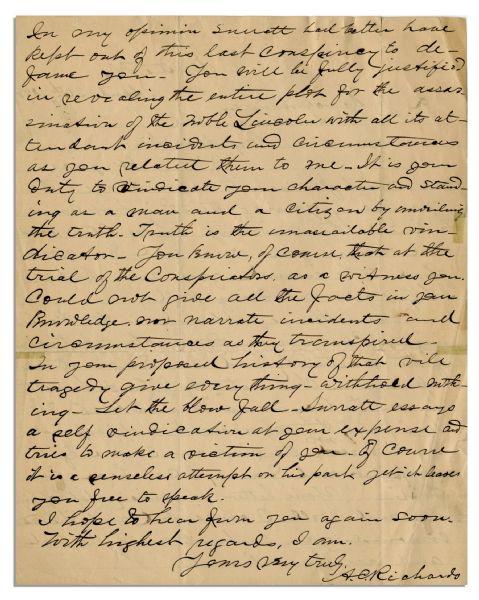 In my opinion Surratt had better have
kept out of this last conspiracy to de-
fame you - You will be fully justified
in revealing the entire plot for the assas-
sination of the noble Lincoln with all its at-
tendant incidents and circumstances
as you related them to me - It is your
duty to vindicate your character and stand-
ing as a man and a citizen by unveiling
the truth - Truth is the unassailable vin-
dicator - You know, of course, that at the
trial of the Conspirators, as a witness you
could not give all the facts in your
knowledge, nor narrate incidents and
circumstances as they transpired -
In your proposed history of that vile
tragedy give everything - withhold noth-
ing - Let the blow fall - Surratt essays
a self vindication at your expense and
tries to make a victim of you. Of course
it is a senseless attempt on his part yet it leaves
you free to speak.
I hope to hear from you again soon.
With highest regards, I am.
Yours very truly,
A.C. Richards